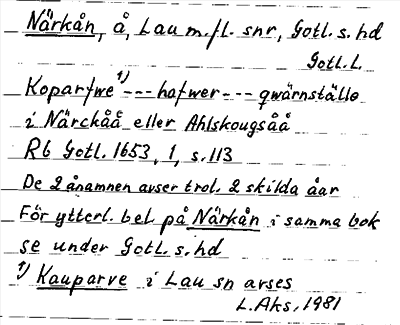 Närkån, å, Lau m.fl. snr, Gotl. s. hd
Gotl. L.
Koparfwe 1) --- hafwer --- qwärnställe
i Närckåå eller Ahlskougsåå
Rb Gotl. 1653, 1, s. 113
De 2 ånamnen avser trol. 2 skilda åar
För ytterl. bel. på Närkån i samma bok
se under Gotl. s. hd
1) Kauparve i Lau sn avses
L. Aks, 1981